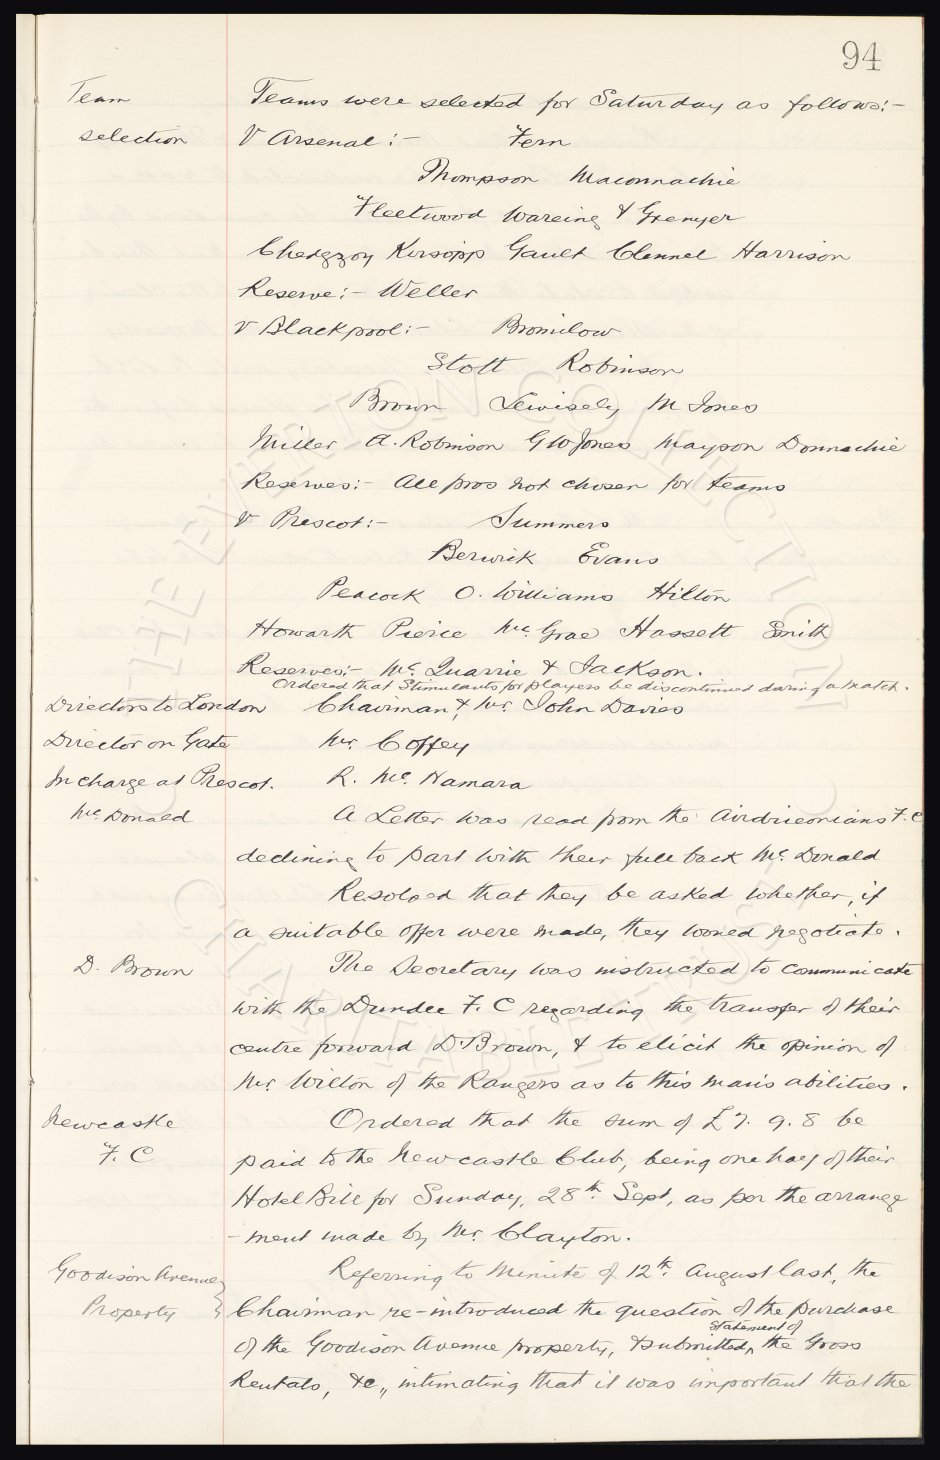 94
Team Teams were selected for Saturday as follows:-
selection V Arsenal:- Fern
Thompson Maconnachie
Fleetwood Wareing & Grenyer
Chedgzoy Kirsopp Gault Clennel Harrison
Reserve:- Weller
v Blackpool:- Bromilow
Stott Robinson
Brown Lewisely M Jones
Miller A. Robinson G W Jones Mayson Donnachie
Reserves:- All pros not chosen for teams
V Prescot:- Summers
Berwick Evans
Peacock O. Williams Hilton
Howarth Pierce McGrae Hassett Smith
Reserves:- McQuarrie & Jackson.
Ordered that Stimulants for players be discontinued during a match.
Directors to London Chairman & Mr. John Davies
Director on Gate Mr. Coffey
In charge at Prescot. R. McNamara
McDonald A Letter was read from the Airdrieonians F.C
declining to part with their full back McDonald
Resolved that they be asked whether, if
a suitable offer were made, they would negotiate.
D. Brown The Secretary was instructed to communicate
with the Dundee F.C regarding the transfer of their
centre forward D. Brown, & to elicit the opinion of
Mr. Wilton of the Rangers as to this man's abilities.
Newcastle Ordered that the sum of £7. 9. 8 be
F. C paid to the Newcastle Club, being one half of their
Hotel Bill for Sunday, 28th Sept, as per the arrange
-ment made by Mr. Clayton.
Goodison Avenue Referring to Minute of 12th August last, the
Property Chairman re-introduced the question of the purchase
of the Goodison Avenue property, & submitted statement of the Gross
Rentals, &c,, intimating that it was important that the
THE EVERTON COLLECTION